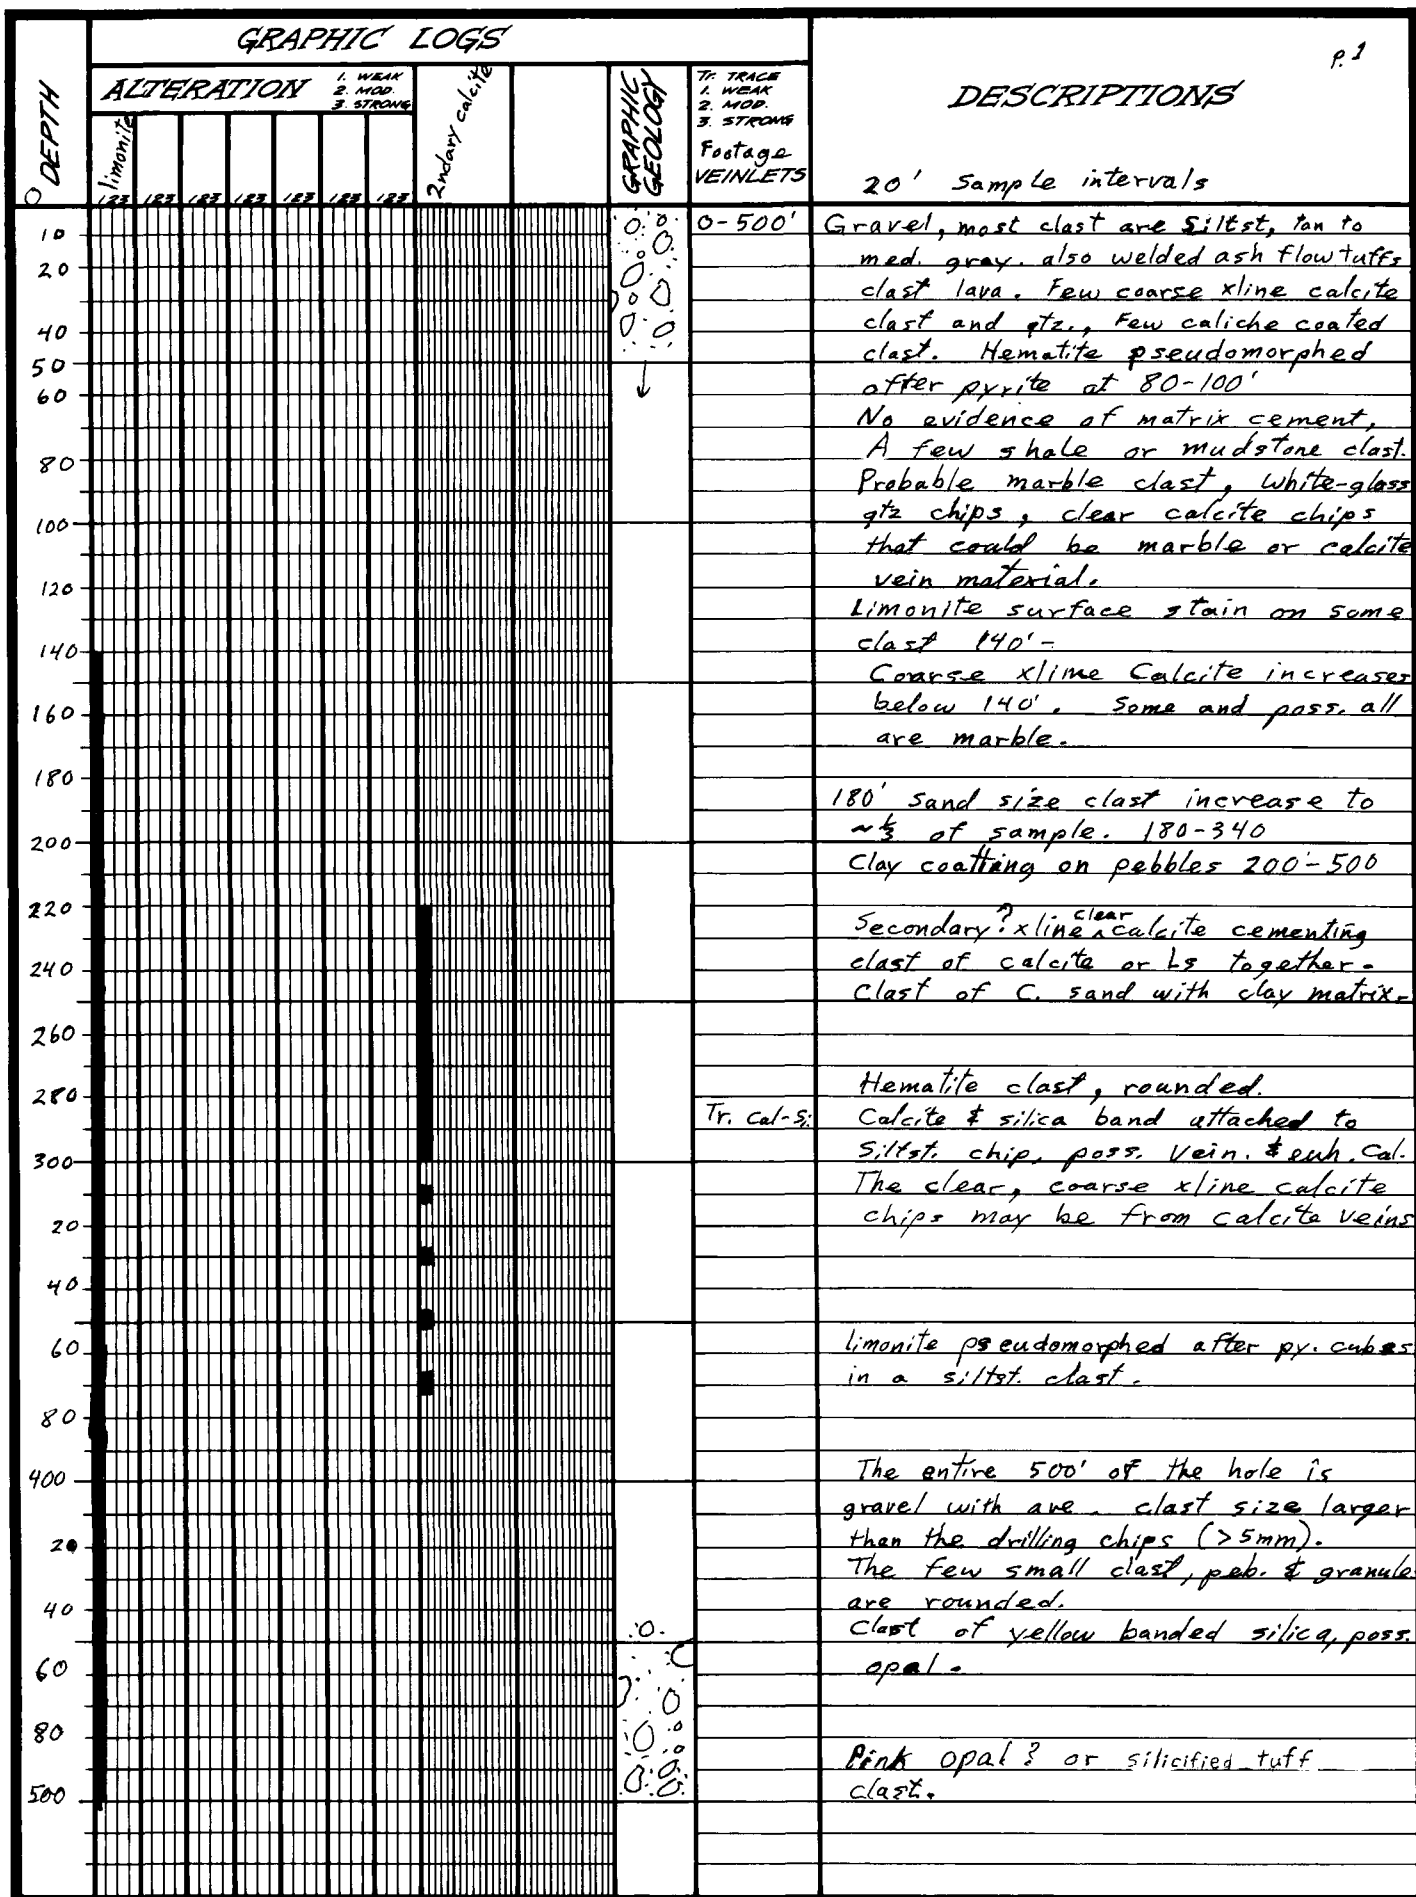 GRAPHIC LOGS
P. 1
DEPTH
ALTERATION
1. WEAK
2. MOD.
3. STRONG
limonite
2ndary calcite
GRAPHIC
GEOLOGY
Tr. TRACE
1. WEAK
2. MOD.
3. STRONG
Footage
VEINLETS
DESCRIPTIONS
20' Sample intervals
0
123 123 123 123 123 123 123
0-500'
Gravel, most clast are Siltst, tan to
10
med. gray. also welded ash flow tuffs
20
clast lava. Few coarse xline calcite
40
clast and qtz., Few caliche coated
50
clast. Hematite pseudomorphed
60
after pyrite at 80-100'
No evidence of matrix cement,
80
A few shale or mudstone clast.
Probable marble clast, white-glass
100
qtz chips, clear calcite chips
that could be marble or calcite
120
vein material.
Limonite surface stain on some
140
clast 140'-
Coarse xlime Calcite increases
160
below 140'. Some and poss. all
are marble.
180
180' Sand size clast increase to
200
~⅓ of sample. 180-340
Clay coatting on pebbles 200'-500
220
Secondary? xline clear calcite cementing
240
clast of calcite or Ls together.
Clast of C. sand with clay matrix.
260
280
Hematite clast, rounded.
Tr. Cal-Si
Calcite & silica band attached to
300
Siltst. chip, poss. Vein. & euh. Cal.
The clear, coarse xline calcite
20
chips may be from calcite veins
40
60
limonite pseudomorphed after py. cubes
in a siltst. clast.
80
400
The entire 500' of the hole is
gravel with ave. clast size larger
20
than the drilling chips (>5mm).
The few small clast, peb. & granule
40
are rounded.
Clast of yellow banded silica, poss.
60
opal.
80
Pink opal? or silicified tuff
500
clast.